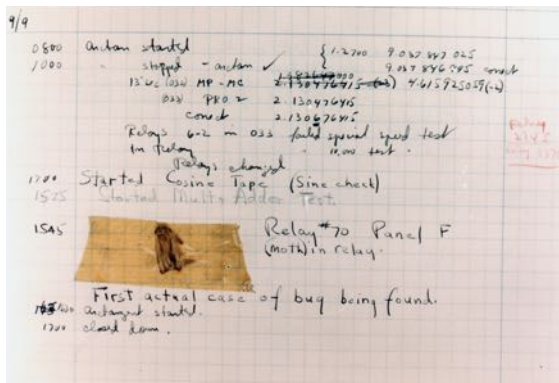 9/9
0800 antan started { 1.2700 9.037 847 025
1000 " stopped - antan ✓ 9.037 846 995 conect
13"uc (032) MP - MC 2.130476415 4.615925059(-2)
(033) PRO 2 2.130476415
conect 2.130676415
Relays 6-2 in 033 failed special speed test
in relay " 10,000 test .
Relays changed
1700 Started Cosine Tape (Sine check)
1525 Started Mult + Adder Test.
1545 Relay #70 Panel F
(moth) in relay.
First actual case of bug being found.
antangent started.
1700 closed down.
Relay